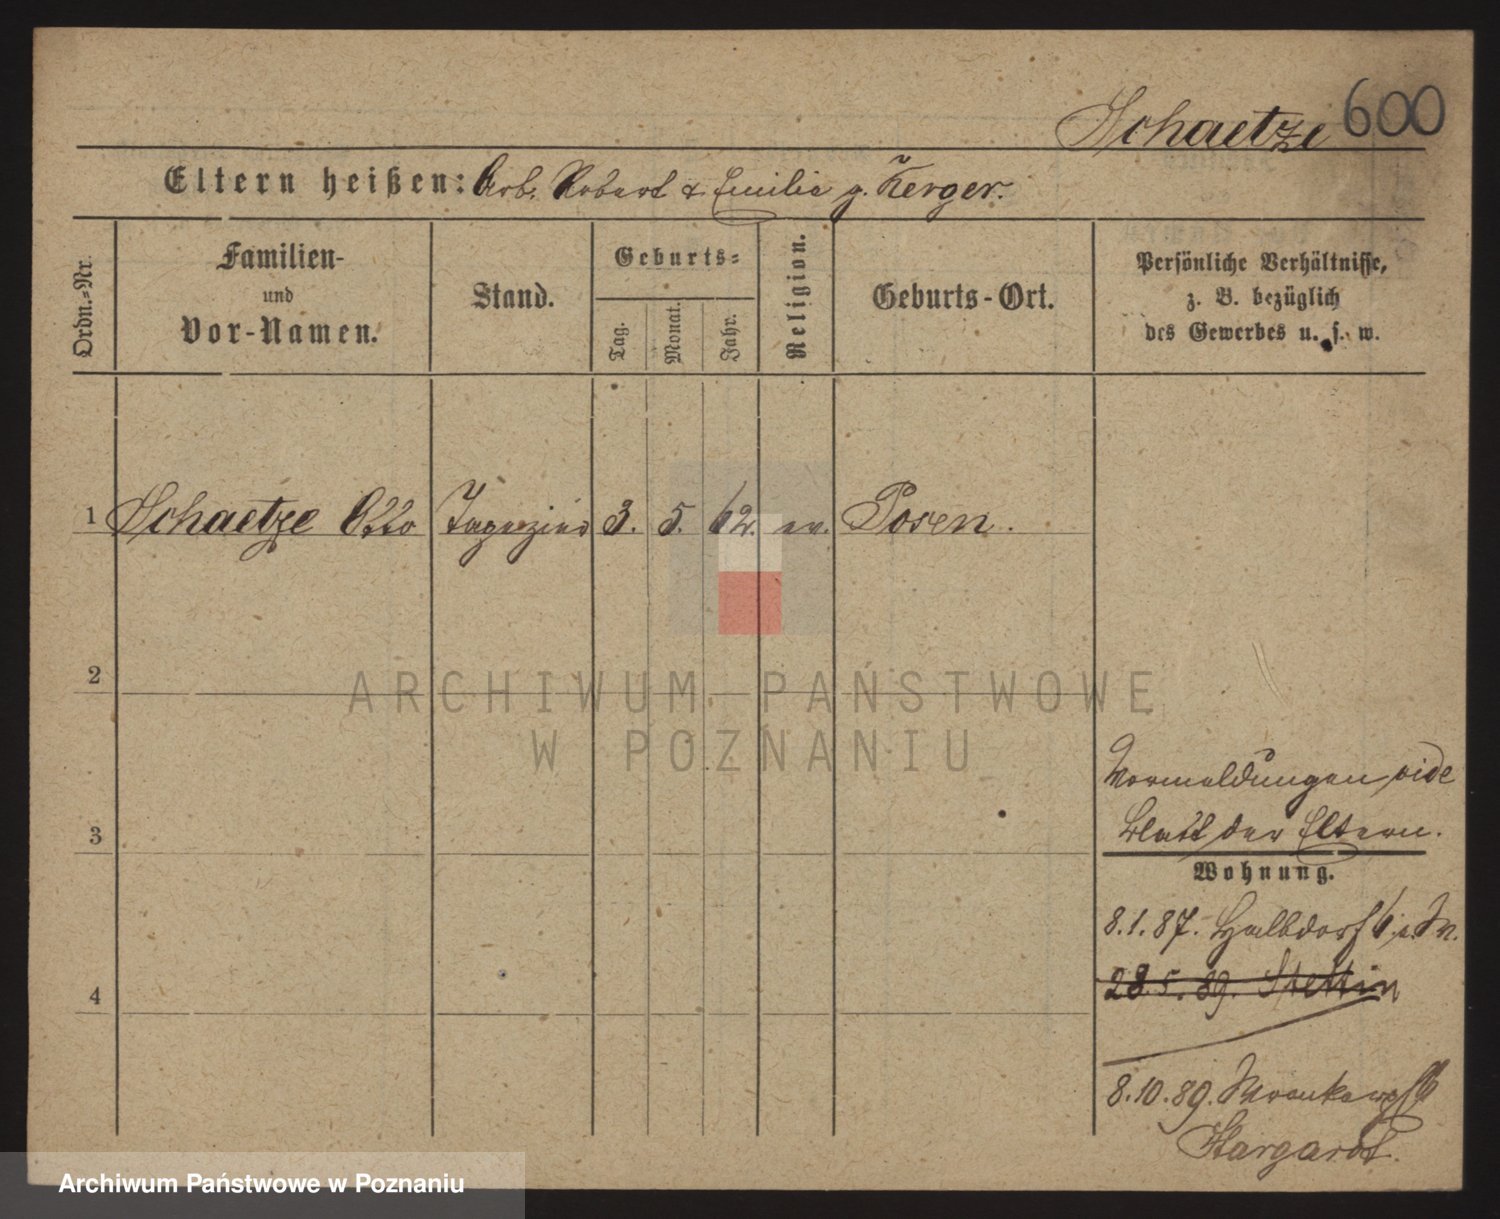 Schaetze 600
Eltern heißen: Arb. Robert & Emilie g. Kerger.
Ordn.-Nr.
Familien-
und
Vor-Namen.
Stand.
Geburts-
Tag.
Monat.
Jahr.
Religion.
Geburts-Ort.
Persönliche Verhältnisse,
z. B. bezüglich
des Gewerbes u. s. w.
1 Schaetze Otto 3. 5. 62. ev. Posen.
2
ARCHIWUM PAŃSTWOWE
W POZNANIU
Vormeldungen vide
3 Blatt der Eltern.
Wohnung.
8.1.87. Halbdorf
4 28.5.89. Stettin
8.10.89.
Stargardt.
Archiwum Państwowe w Poznaniu